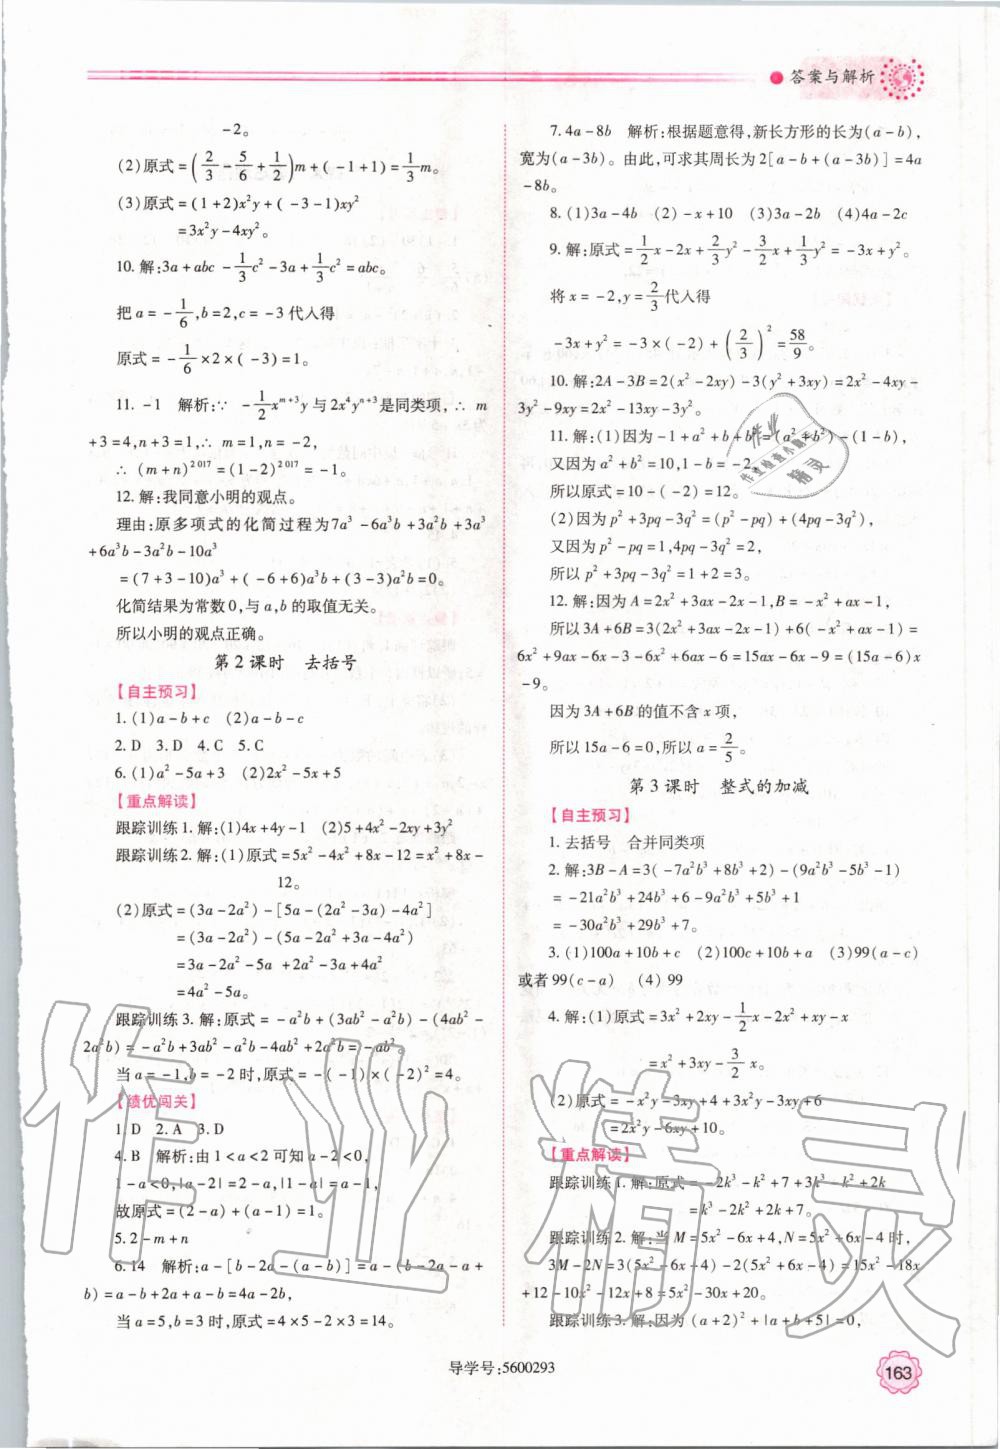 答案与解析
-2。
(2)原式=(2/3-5/6+1/2)m+(-1+1)=1/3m。
(3)原式=(1+2)x²y+(-3-1)xy²
=3x²y-4xy²。
10.解:3a+abc-1/3c²-3a+1/3c²=abc。
把a=-1/6,b=2,c=-3代入得
原式=-1/6×2×(-3)=1。
11.-1 解析:∵ -1/2x^{m+3}y与2x⁴y^{n+3}是同类项,∴ m
+3=4,n+3=1,∴ m=1,n=-2,
∴ (m+n)^{2017}=(1-2)^{2017}=-1。
12.解:我同意小明的观点。
理由:原多项式的化简过程为7a³-6a³b+3a²b+3a³
+6a³b-3a²b-10a³
=(7+3-10)a³+(-6+6)a³b+(3-3)a²b=0。
化简结果为常数0,与a,b的取值无关。
所以小明的观点正确。
第2课时 去括号
【自主预习】
1.(1)a-b+c (2)a-b-c
2.D 3.D 4.C 5.C
6.(1)a²-5a+3 (2)2x²-5x+5
【重点解读】
跟踪训练1.解:(1)4x+4y-1 (2)5+4x²-2xy+3y²
跟踪训练2.解:(1)原式=5x²-4x²+8x-12=x²+8x-
12。
(2)原式=(3a-2a²)-[5a-(2a²-3a)-4a²]
=(3a-2a²)-(5a-2a²+3a-4a²)
=3a-2a²-5a+2a²-3a+4a²
=4a²-5a。
跟踪训练3.解:原式=-a²b+(3ab²-a²b)-(4ab²-
2a²b)=-a²b+3ab²-a²b-4ab²+2a²b=-ab²。
当a=-1,b=-2时,原式=-(-1)×(-2)²=4。
【绩优闯关】
1.D 2.A 3.D
4.B 解析:由1<a<2可知a-2<0,
1-a<0,|a-2|=2-a,|1-a|=a-1,
故原式=(2-a)+(a-1)=1。
5.2-m+n
6.14 解析:a-[b-2a-(a-b)]=a-(b-2a-a+
b)=a-b+2a+a-b=4a-2b,
当a=5,b=3时,原式=4×5-2×3=14。
7.4a-8b 解析:根据题意得,新长方形的长为(a-b),
宽为(a-3b)。由此,可求其周长为2[a-b+(a-3b)]=4a
-8b。
8.(1)3a-4b (2)-x+10 (3)3a-2b (4)4a-2c
9.解:原式=1/2x-2x+2/3y²-3/2x+1/3y²=-3x+y²。
将x=-2,y=2/3代入得
-3x+y²=-3×(-2)+(2/3)²=58/9。
10.解:2A-3B=2(x²-2xy)-3(y²+3xy)=2x²-4xy-
3y²-9xy=2x²-13xy-3y²。
11.解:(1)因为-1+a²+b+b²=(a²+b²)-(1-b),
又因为a²+b²=10,1-b=-2,
所以原式=10-(-2)=12。
(2)因为p²+3pq-3q²=(p²-pq)+(4pq-3q²),
又因为p²-pq=1,4pq-3q²=2,
所以p²+3pq-3q²=1+2=3。
12.解:因为A=2x²+3ax-2x-1,B=-x²+ax-1,
所以3A+6B=3(2x²+3ax-2x-1)+6(-x²+ax-1)=
6x²+9ax-6x-3-6x²+6ax-6=15ax-6x-9=(15a-6)x
-9。
因为3A+6B的值不含x项,
所以15a-6=0,所以a=2/5。
第3课时 整式的加减
【自主预习】
1.去括号 合并同类项
2.解:3B-A=3(-7a²b³+8b³+2)-(9a²b³-5b³-1)
=-21a²b³+24b³+6-9a²b³+5b³+1
=-30a²b³+29b³+7。
3.(1)100a+10b+c (2)100c+10b+a (3)99(a-c)
或者99(c-a) (4)99
4.解:(1)原式=3x²+2xy-1/2x-2x²+xy-x
=x²+3xy-3/2x。
(2)原式=-x²y-3xy+4+3x²y-3xy+6
=2x²y-6xy+10。
【重点解读】
跟踪训练1.解:原式=-2k³-k²+7+3k³-k²+2k
=k³-2k²+2k+7。
跟踪训练2.解:当M=5x²-6x+4,N=5x²+6x-4时,
3M-2N=3(5x²-6x+4)-2(5x²+6x-4)=15x²-18x
+12-10x²-12x+8=5x²-30x+20。
跟踪训练3.解:因为(a+2)²+|a+b+5|=0,
导学号:5600293
163
作业精灵